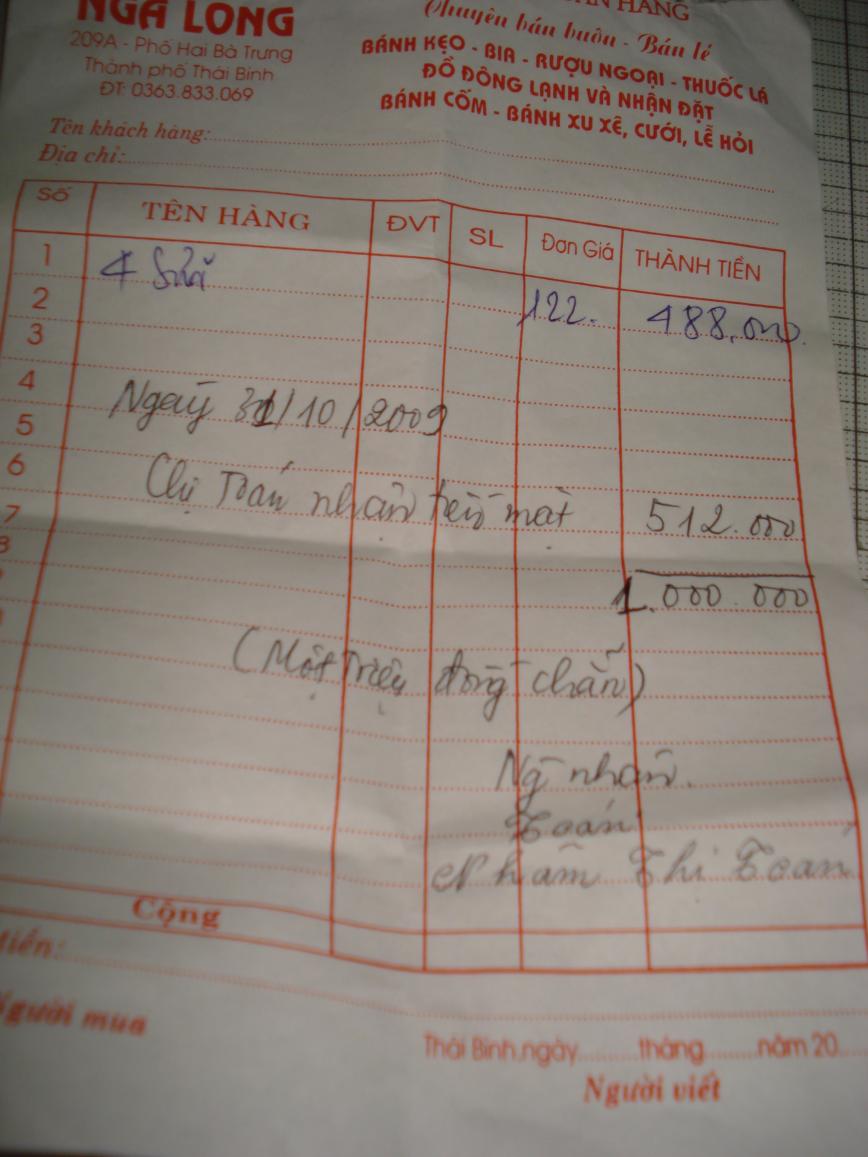 NGA LONG
209A - Phố Hai Bà Trưng
Thành phố Thái Bình
ĐT: 0363.833.069
HÀNG
Chuyên bán buôn - Bán lẻ
BÁNH KẸO - BIA - RƯỢU NGOẠI - THUỐC LÁ
ĐỒ ĐÔNG LẠNH VÀ NHẬN ĐẶT
BÁNH CỐM - BÁNH XU XÊ, CƯỚI, LỄ HỎI
Tên khách hàng:
Địa chỉ:
Số TÊN HÀNG ĐVT SL Đơn Giá THÀNH TIỀN
1 4 Sữa
2 122. 488.000
3
4
5 Ngaỳ 31/10/2009
6
7 Chị Toán nhận tiền mặt 512.000
8 1.000.000
(Một triệu đồng chẵn)
Ng nhận.
Toán
Nhâm Thị Toán
Cộng
tiền:
Người mua
Thái Bình, ngày tháng năm 20
Người viết